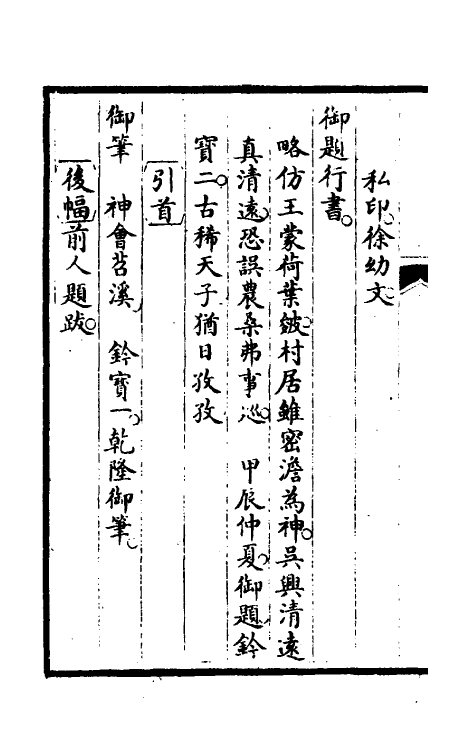 私印徐幼文
御題行書
略仿王蒙荷葉皴村居雖密澹為神吳興清遠
真清遠恐誤農桑弗事巡　甲辰仲夏御題鈐
寶二古稀天子猶日孜孜
引首
御筆　神會苕溪　鈐寶一乾隆御筆
後幅前人題跋